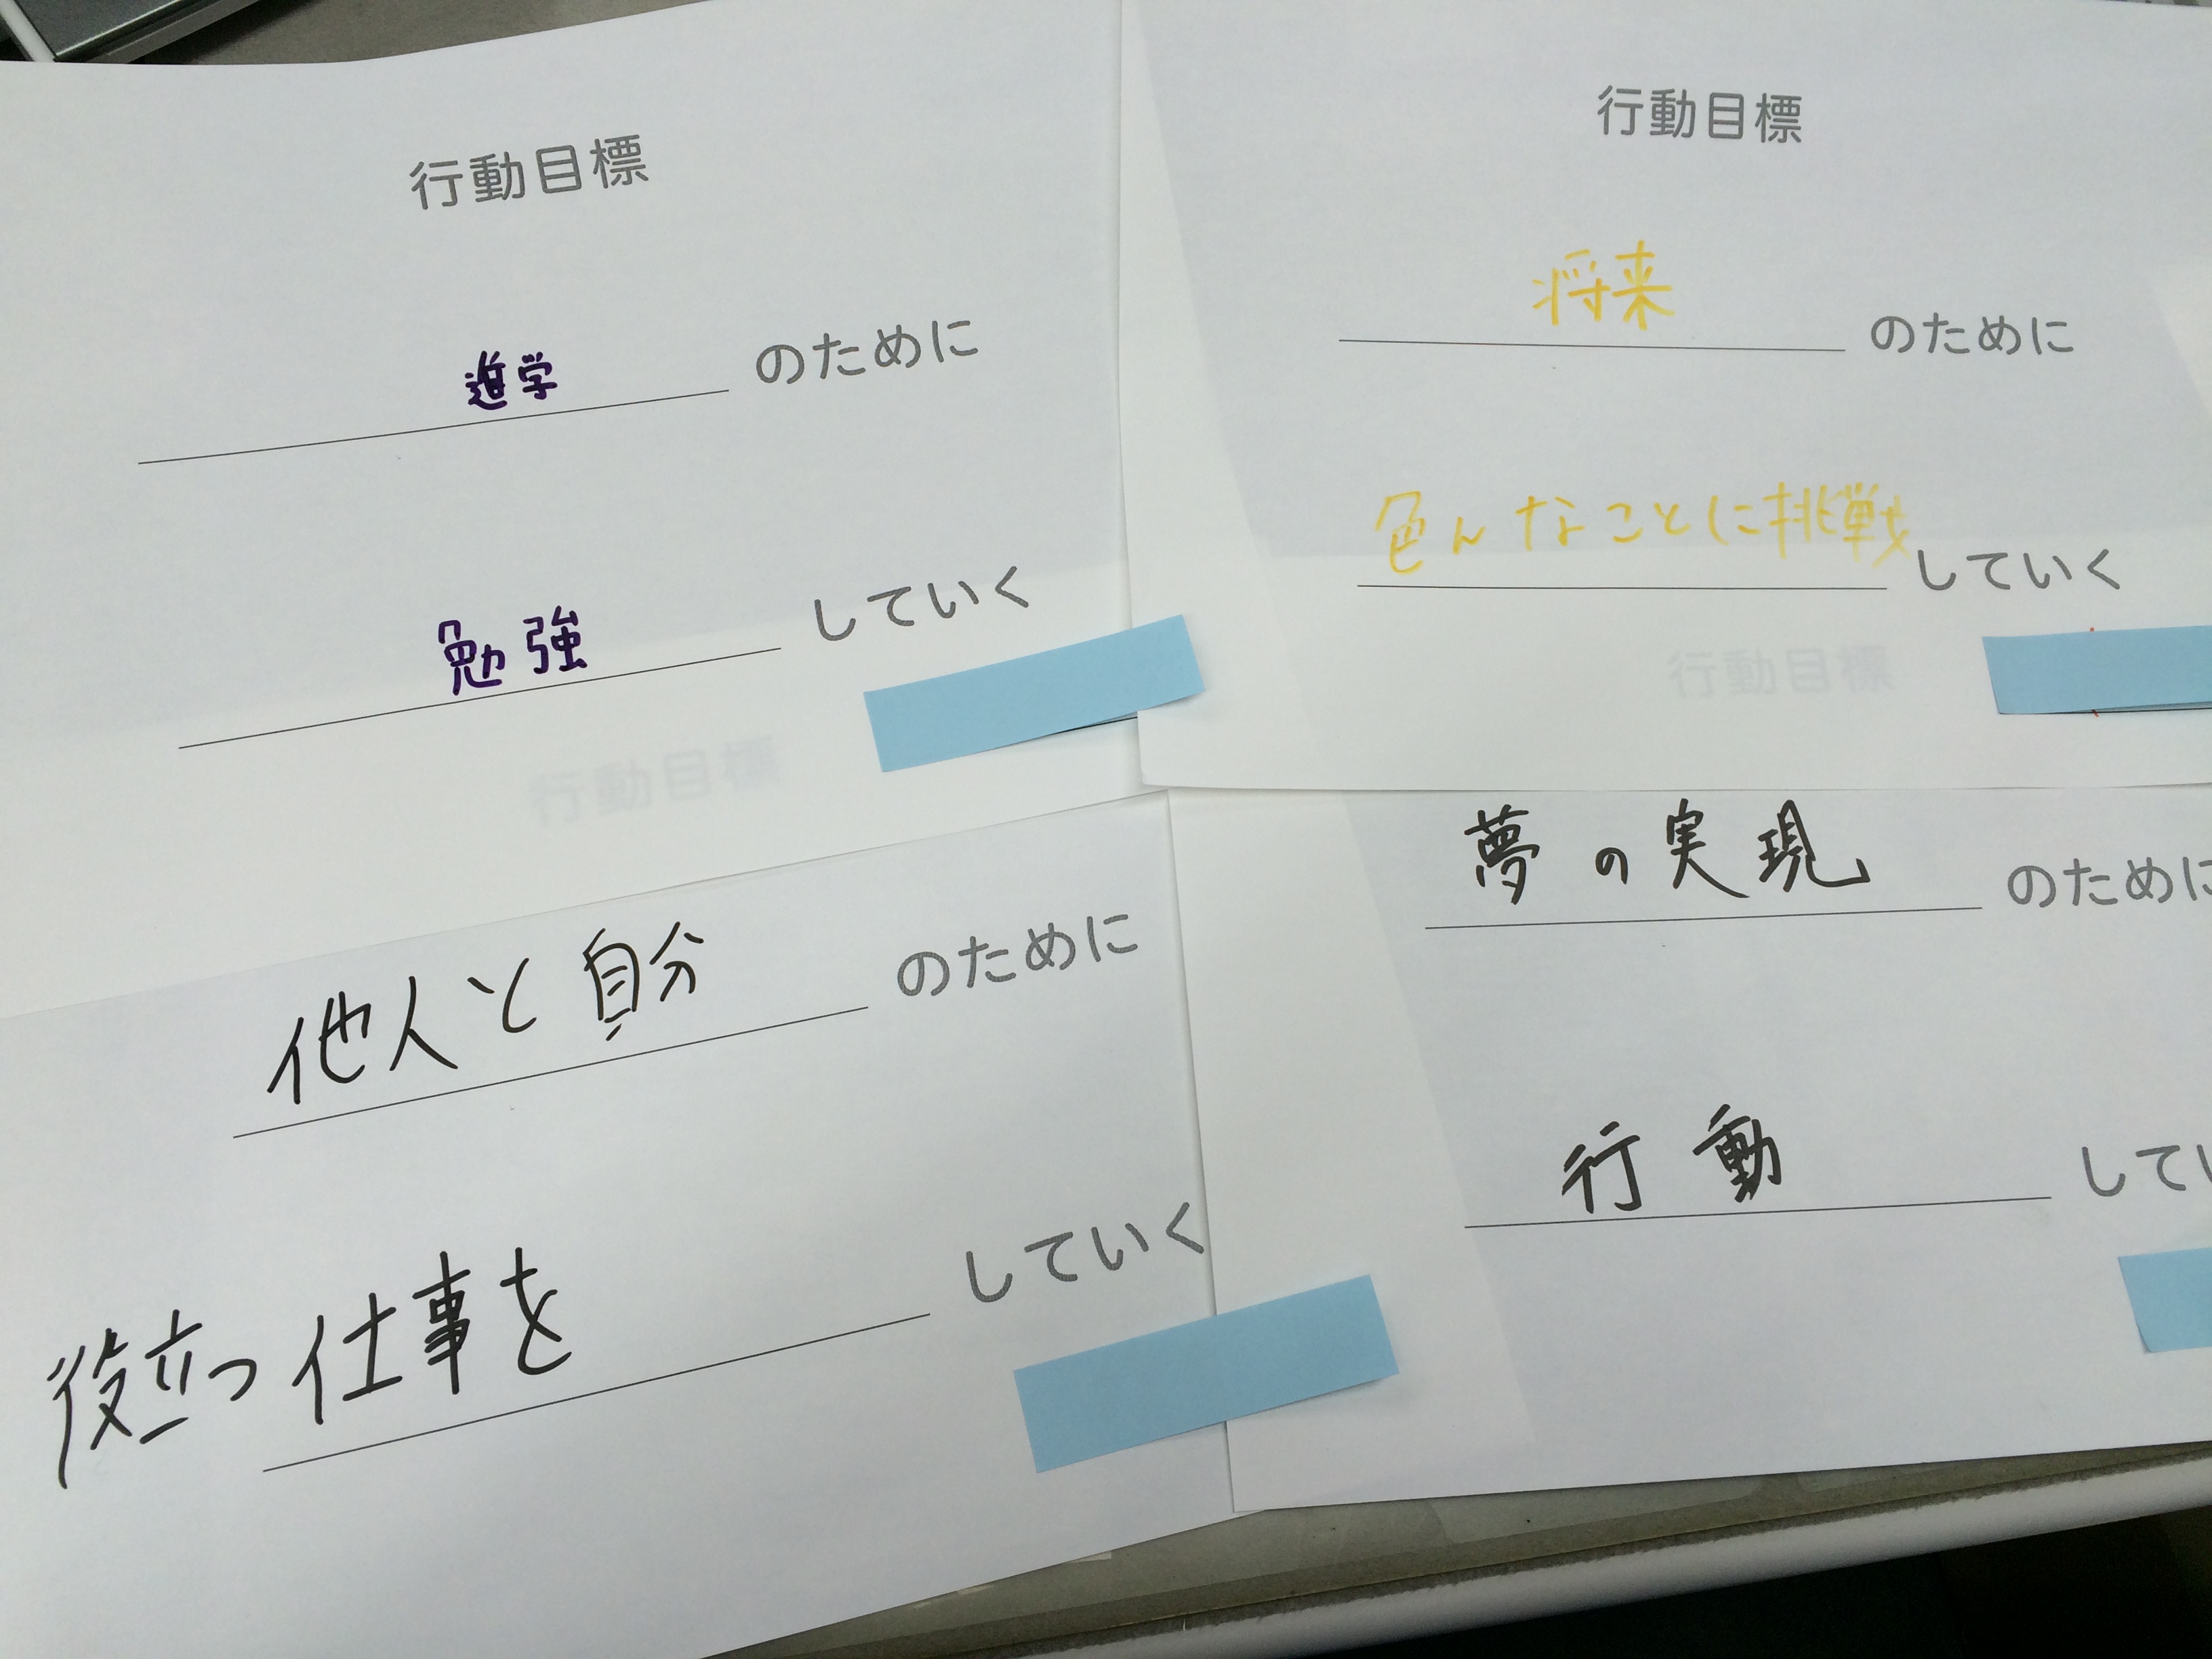 行動目標
進学 のために
勉強 していく
行動目標
行動目標
将来 のために
色んなことに挑戦 していく
行動目標
他人と自分 のために
役立つ仕事を していく
夢の実現 のために
行動 してい